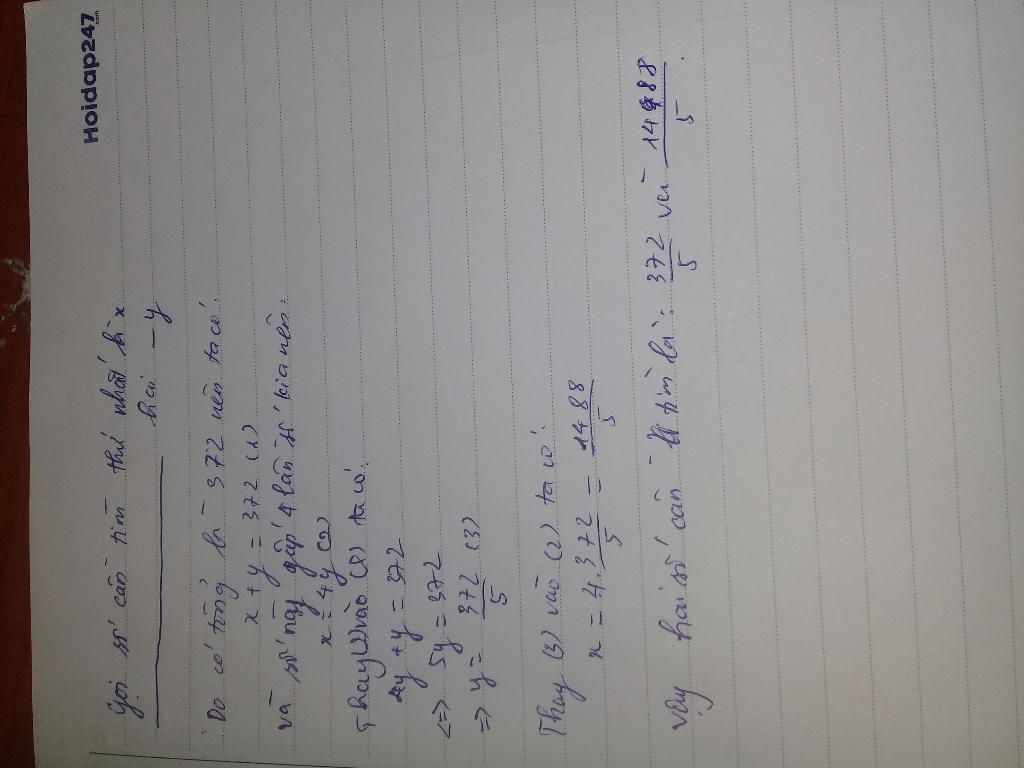 Hoidap247
.com
Gọi số cần tìm thứ nhất là x
hai - y
Do có tổng là 372 nên ta có:
x + y = 372 (1)
và số này gấp 4 lần số kia nên:
x = 4y (2)
Thay (2) vào (1) ta có:
4y + y = 372
<=> 5y = 372
=> y = 372/5 (3)
Thay (3) vào (2) ta có:
x = 4.372/5 = 1488/5
Vậy hai số cần tìm là: 372/5 và 1488/5.